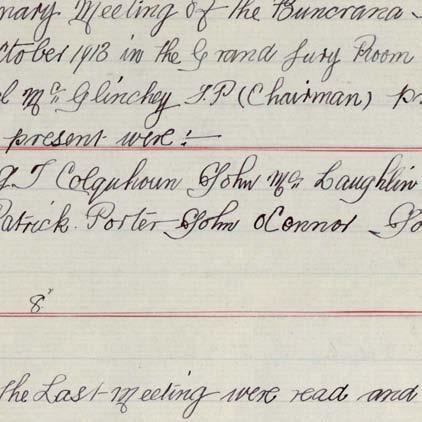 nary Meeting of the Buncrana
ctober 1913 in the Grand Jury Room
l Mc Glinchey J.P (Chairman) pr
present were:—
G T Colquhoun John Mc Laughlin
Patrick Porter John OConnor Jo
8
the Last Meeting were read and